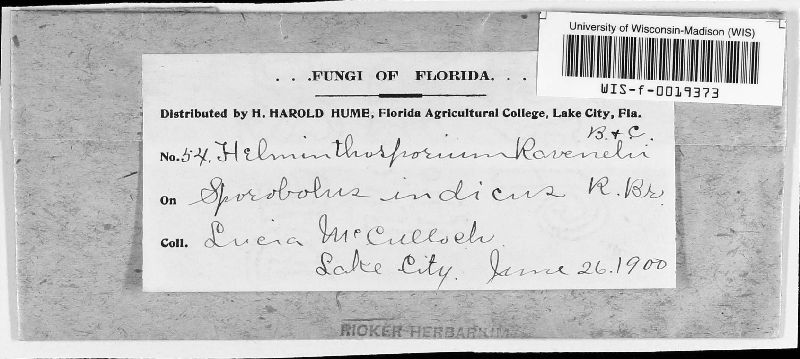 University of Wisconsin-Madison (WIS)
WIS-f-0019373
. . .FUNGI OF FLORIDA. . .
Distributed by H. HAROLD HUME, Florida Agricultural College, Lake City, Fla.
B. & C.
No. 54. Helminthosporium Ravenelii
On Sporobolus indicus R. Br.
Coll. Lucia McCulloch
Lake City. June 26. 1900
RICKER HERBARIUM